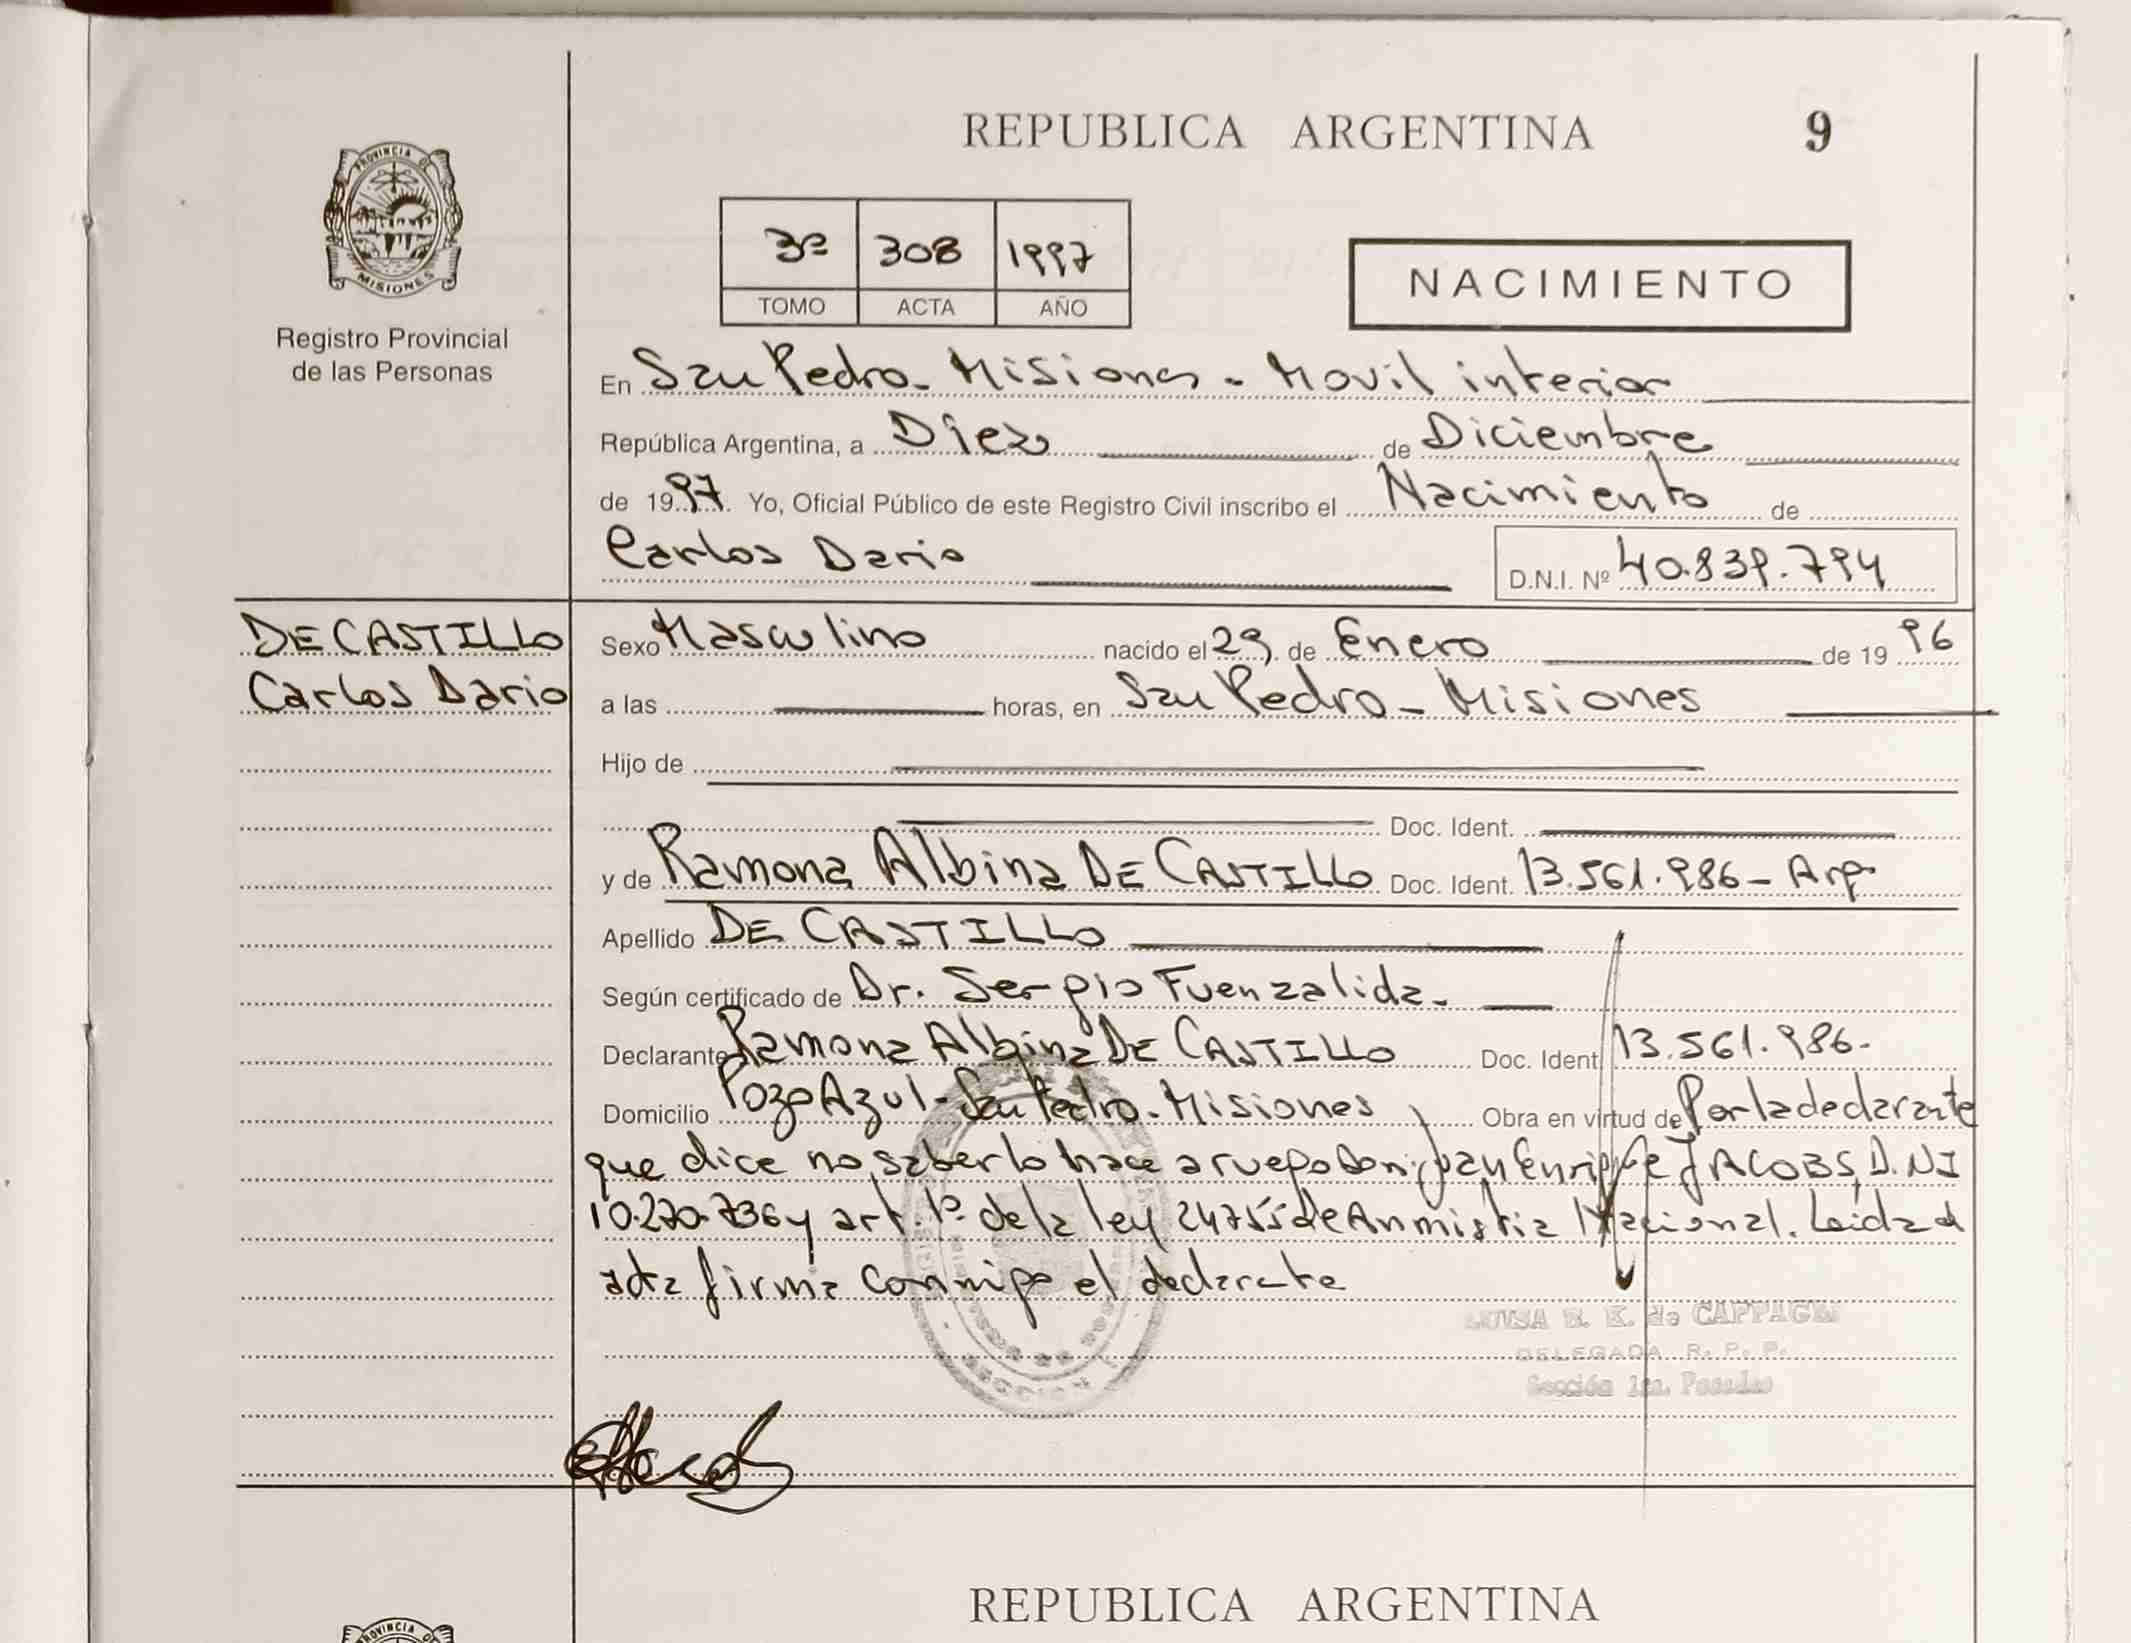 REPUBLICA ARGENTINA 9
PROVINCIA DE
MISIONES
Registro Provincial
de las Personas
3º 308 1997
TOMO ACTA AÑO
NACIMIENTO
En San Pedro - Misiones - Movil interior
República Argentina, a Diez de Diciembre
de 1997. Yo, Oficial Público de este Registro Civil inscribo el Nacimiento de
Carlos Dario D.N.I. Nº 40.839.794
DE CASTILLO
Carlos Dario
Sexo Masculino nacido el 29 de Enero de 1996
a las horas, en San Pedro - Misiones
Hijo de
Doc. Ident.
y de Ramona Albina DE CASTILLO Doc. Ident. 13.561.986 - Arg
Apellido DE CASTILLO
Según certificado de Dr. Sergio Fuenzalida.
Declarante Ramona Albina DE CASTILLO Doc. Ident 13.561.986.
Domicilio Pozo Azul - San Pedro - Misiones Obra en virtud de Por la declarante
que dice no saberlo hace a ruego Don: Juan Enrique JACOBS, D.NI
10.270.736 y art. 1º de la ley 24755 de Anmistia Nacional. Leida el
acta firma conmigo el declarante
LUISA E. K. de CAPPAGLI
DELEGADA R. P. P.
Sección 1ra. Posadas
REPUBLICA ARGENTINA
PROVINCIA